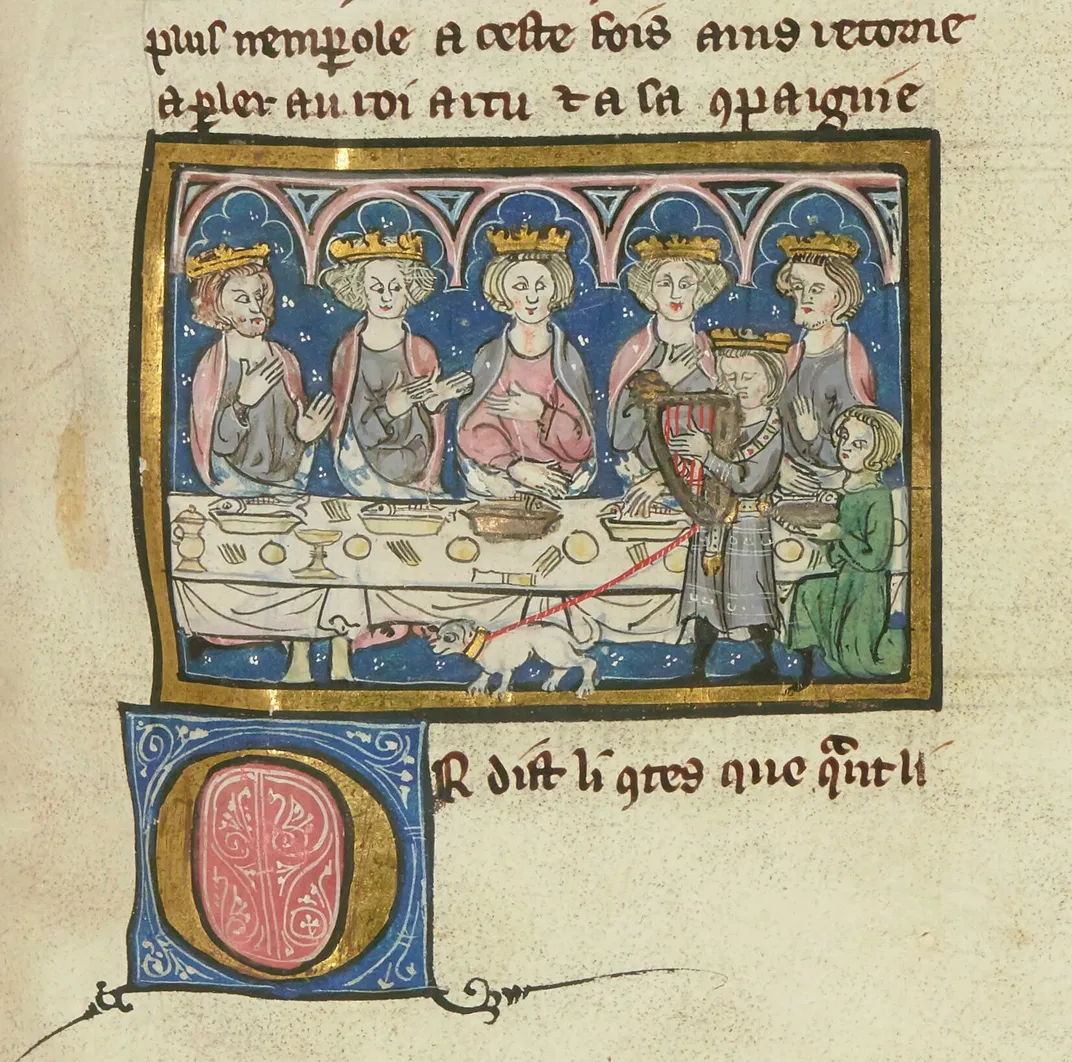 plus nemꝑole a ceste fois ains retorne
a ꝑler au roi artu ⁊ a sa ꝯpaignie
OR dist li ꝯtes que qᷓnt li